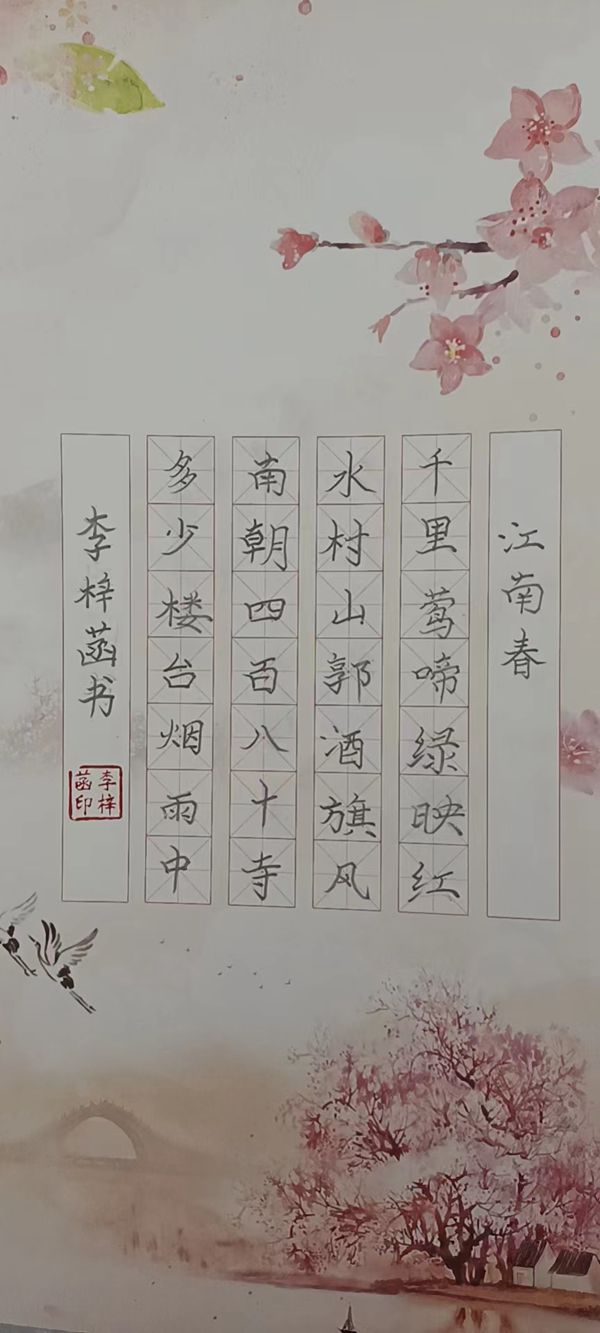 江南春
千里莺啼绿映红
水村山郭酒旗风
南朝四百八十寺
多少楼台烟雨中
李梓菡书
李梓菡印